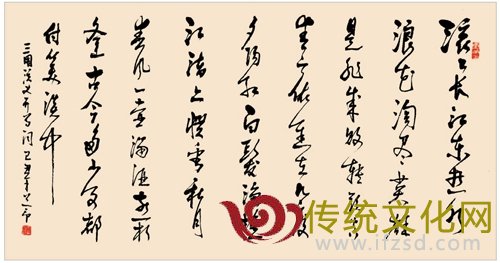 滚々长江东逝水
浪花淘尽英雄
是非成败转头空
青山依旧在几度
夕阳红白发渔樵
江渚上惯看秋月
春风一壶浊酒喜相
逢古今多少事都
付笑谈中
三国演义开篇词己丑年
传统文化网
www.ifzsd.com